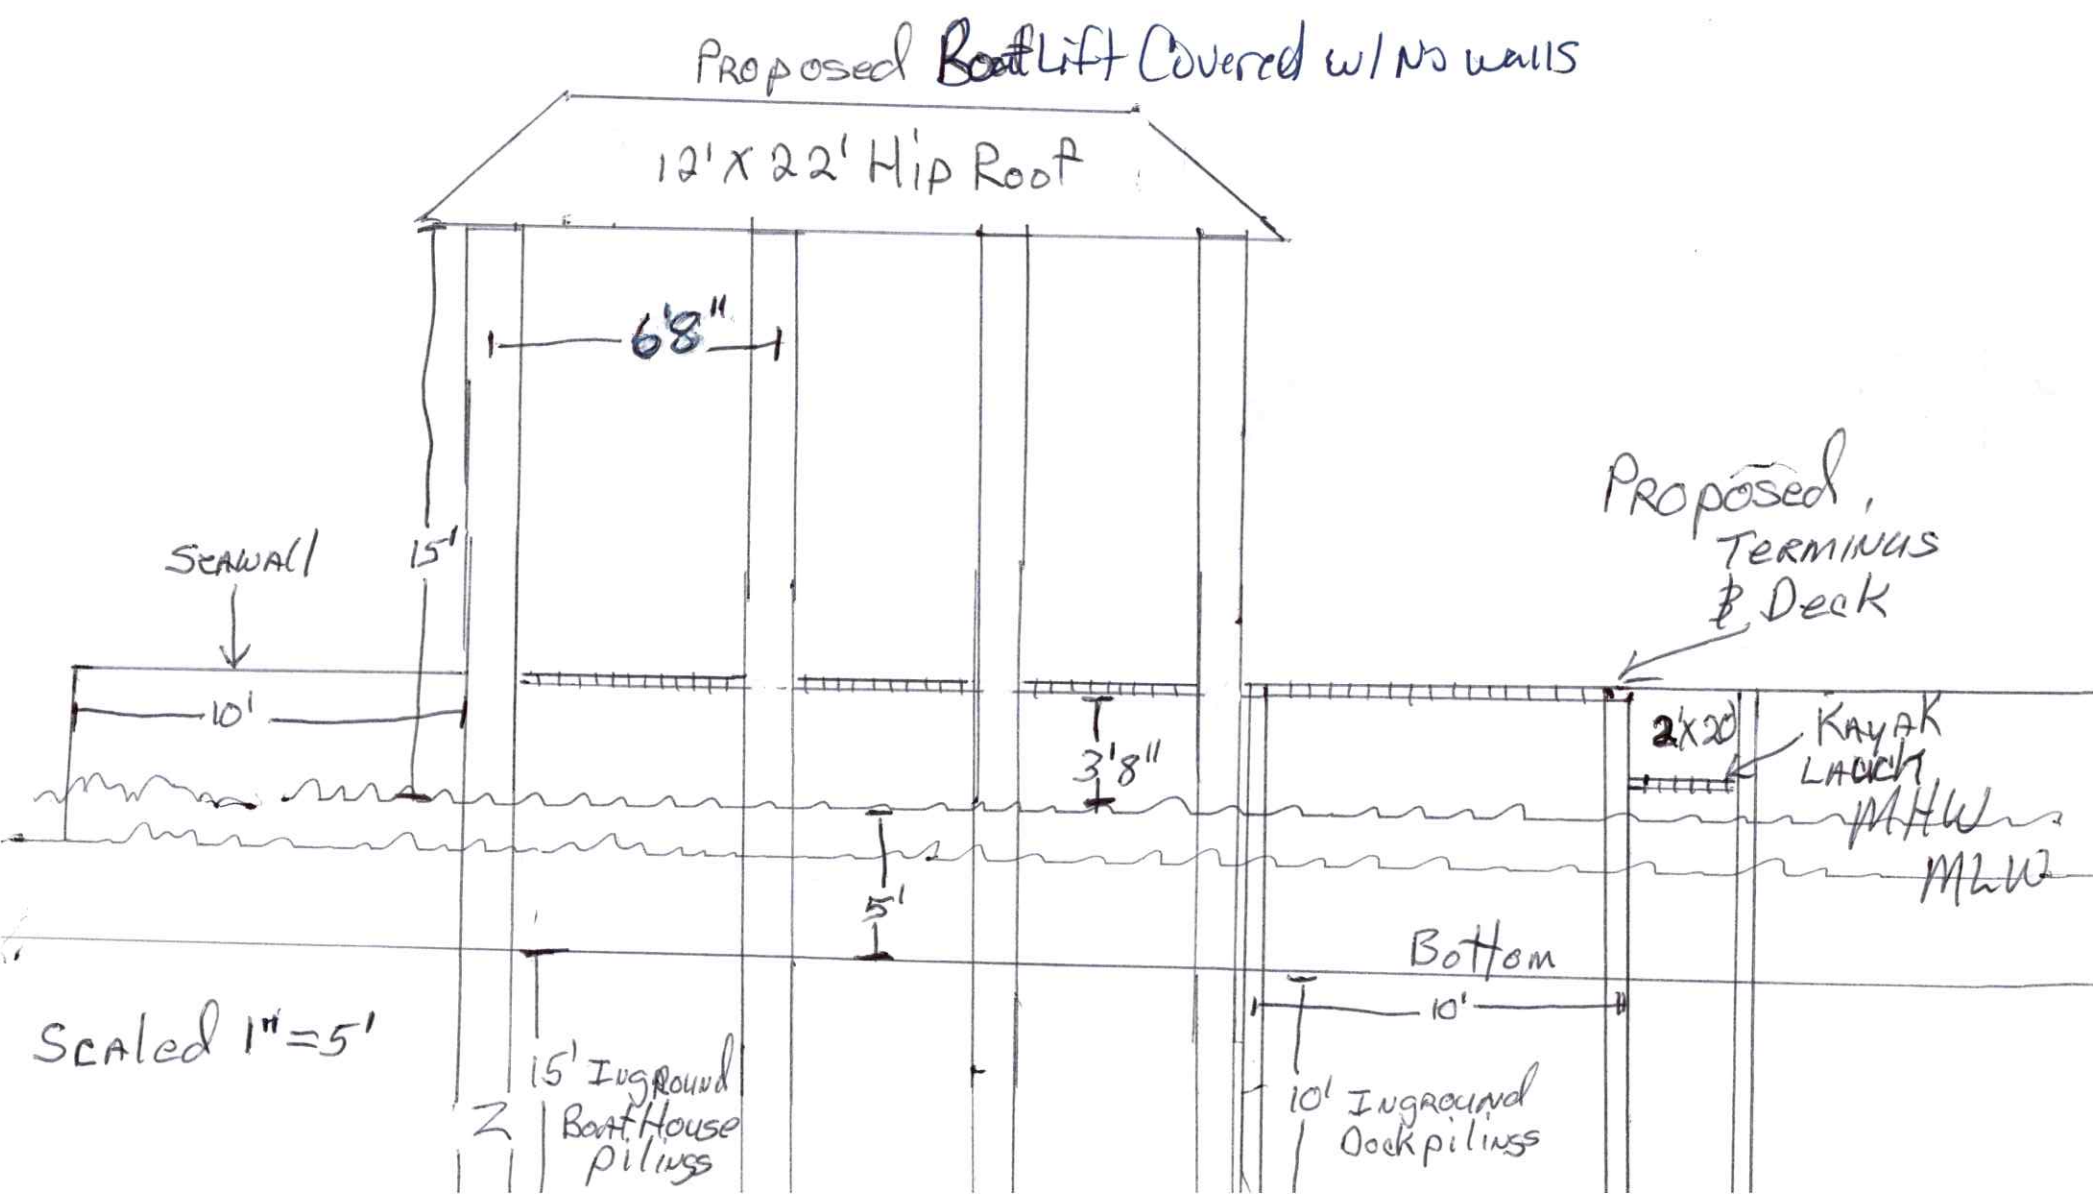 Proposed Boat Lift Covered w/ No walls
12' X 22' Hip Roof
6'8"
15'
Seawall
Proposed
Terminus
& Deck
10'
2'X20'
Kayak
3'8"
MHW
MLW
5'
Bottom
10'
Scaled 1"=5'
15' Inground
Boat House
pilings
10' Inground
Dock pilings